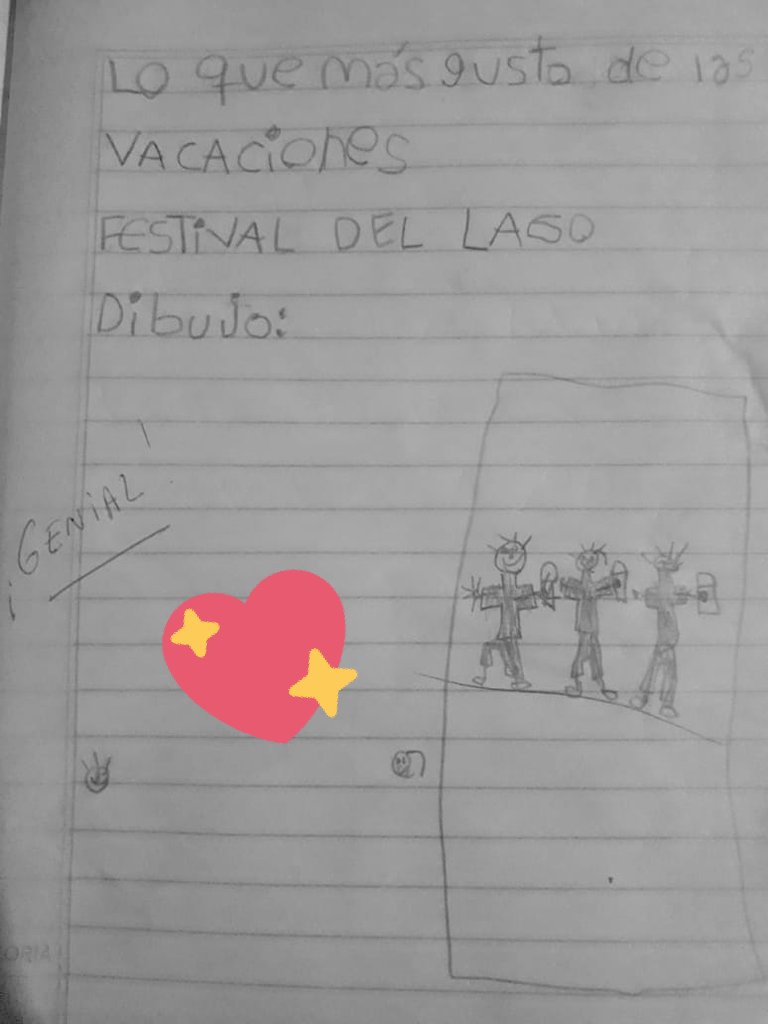 Lo que más gusta de las
VACACiones
FESTiVAL DEL LAGO
Dibujo:
¡GENiAL!
ORIA